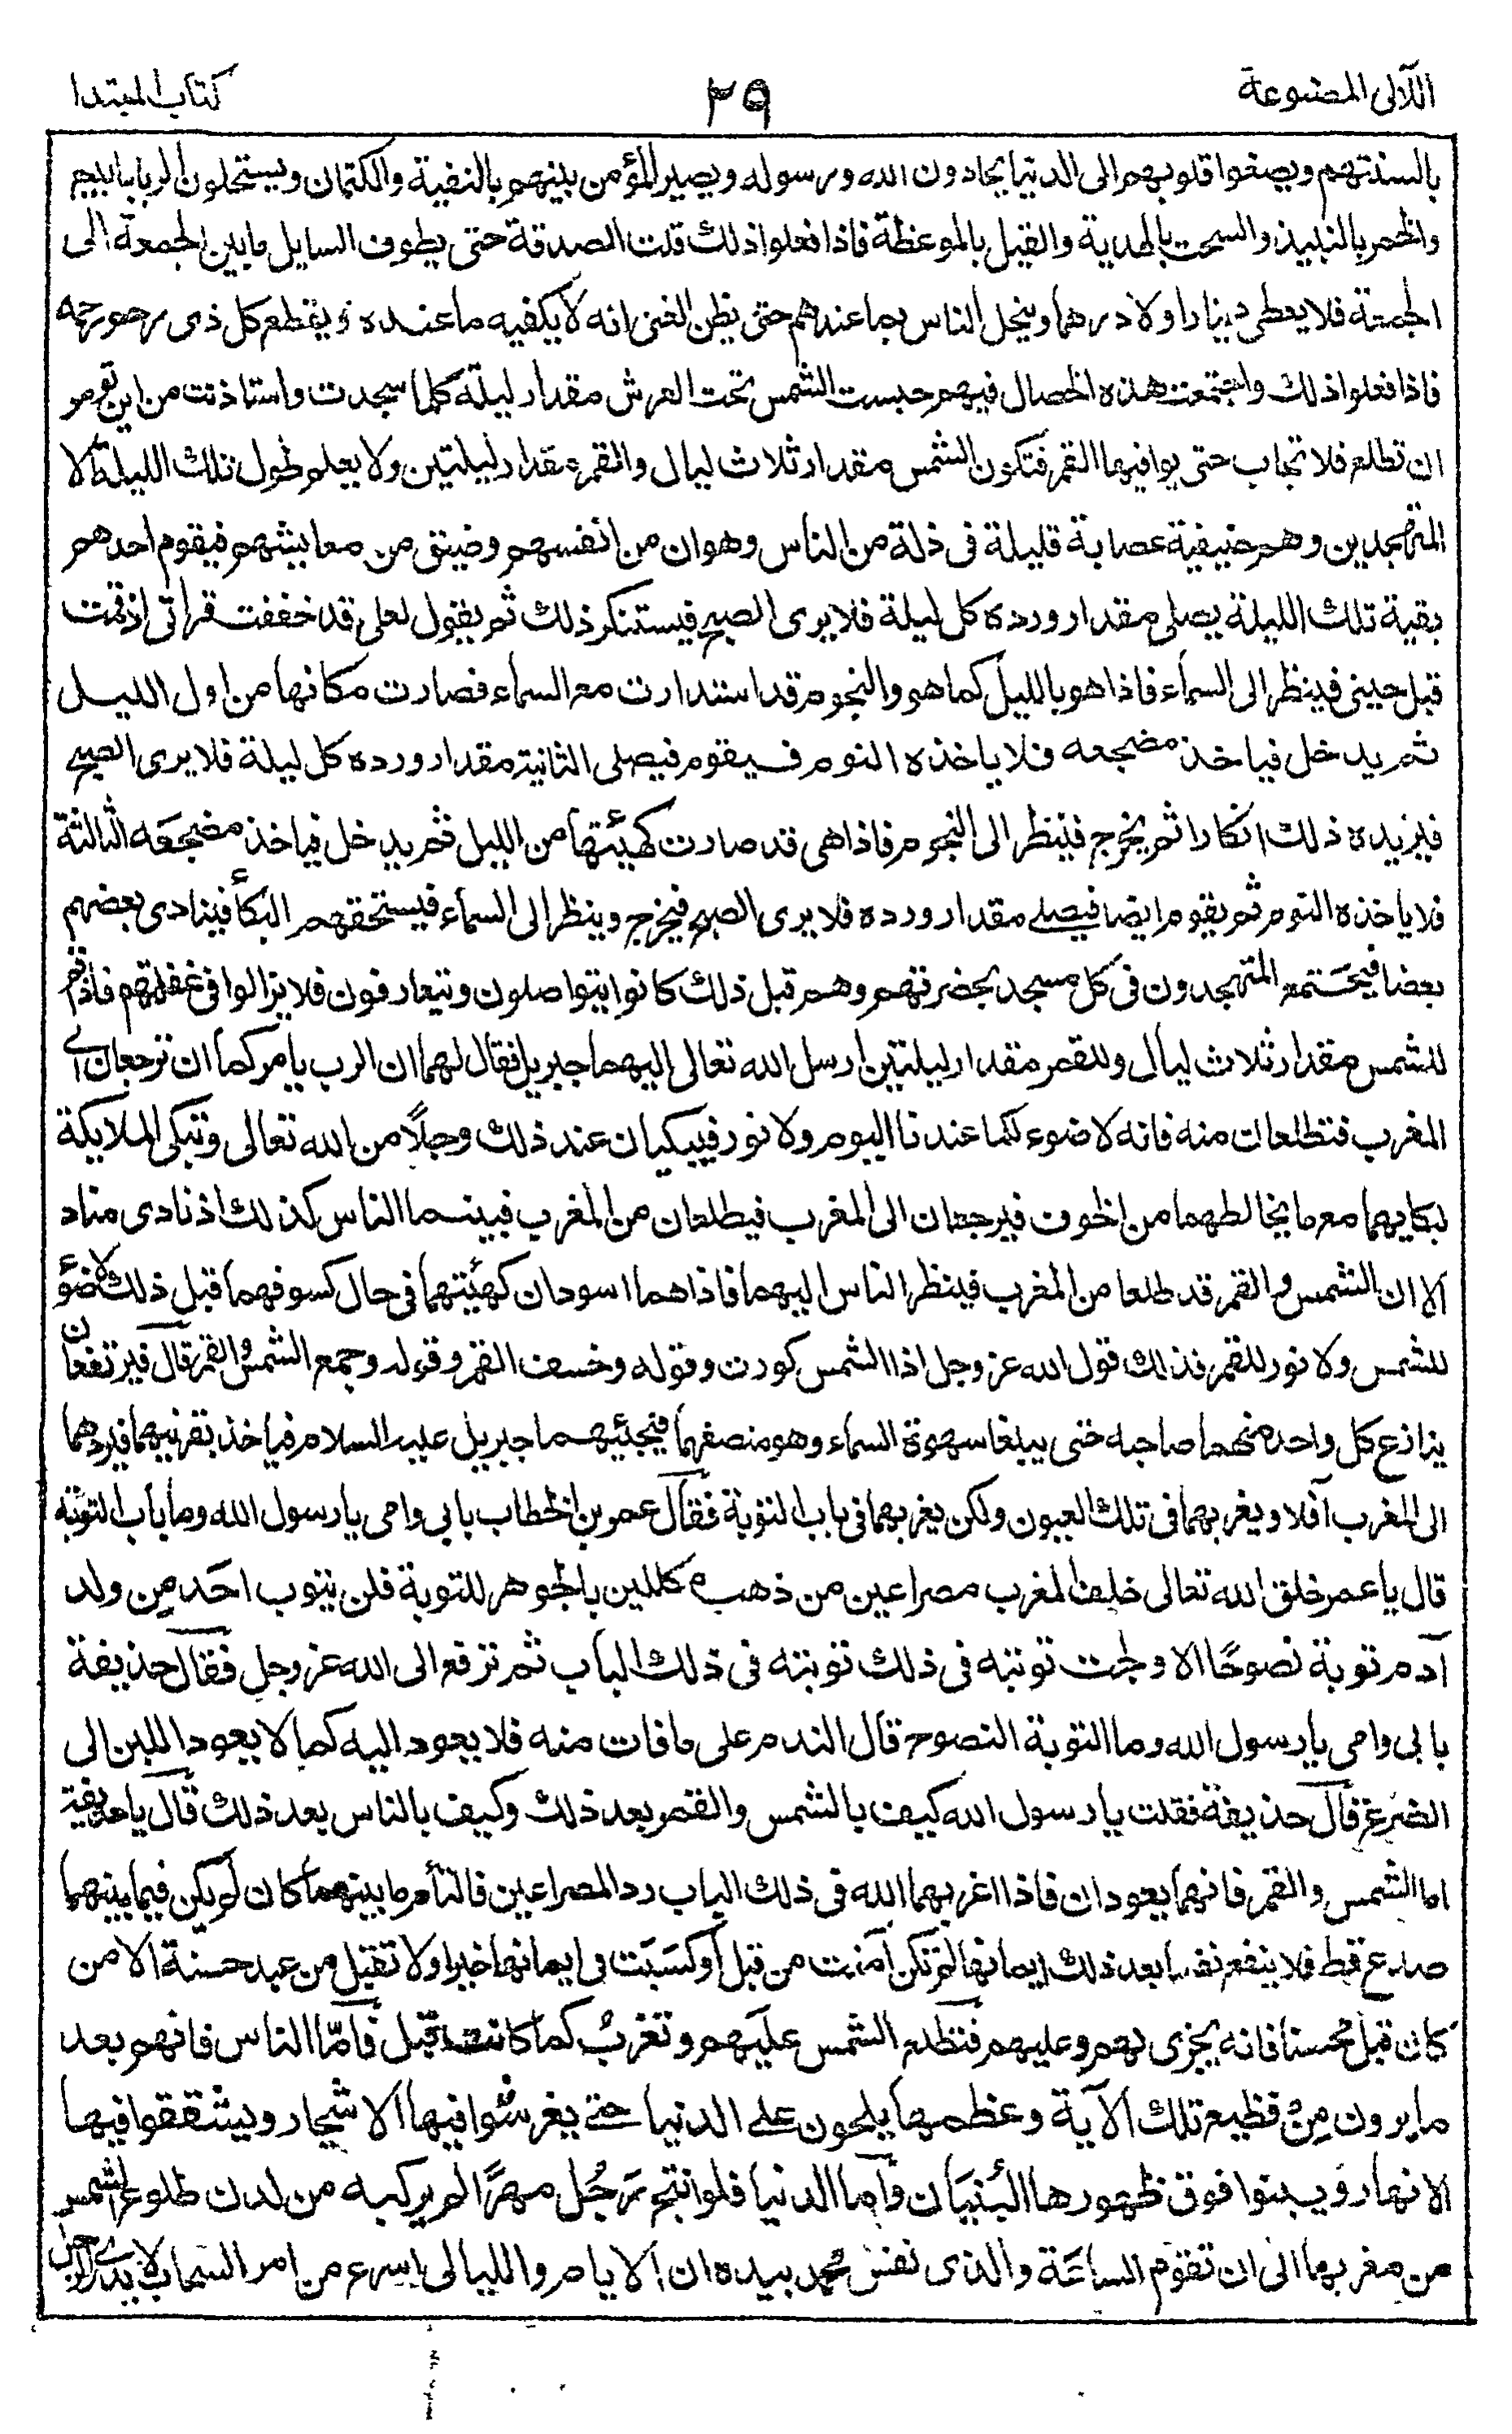 اللآلى المصنوعة
٢٩
كتاب المبتدا
بالسنتهم ويصغوا قلوبهم الى الدنيا يحادون الله ورسوله ويصير المؤمن بينهم بالتقية والكتمان ويستحلون الربا بالبيع
والخمر بالنبيذ والسحت بالهدية والقيل بالموعظة فاذا فعلوا ذلك قلت الصدقة حتى يطوف السايل ما بين الجمعة الى
الجمعة فلا يعطى دينارا ولا درهما ويبخل الناس بما عندهم حتى يظن الغنى انه لا يكفيه ما عنده ويقطع كل ذى رحم رحمه
فاذا فعلوا ذلك واجتمعت هذه الخصال فيهم حبست الشمس تحت العرش مقدار ليلة كلما سجدت واستاذنت من اين تؤمر
ان تطلع فلا تجاب حتى يوافيها القمر فتكون الشمس مقدار ثلاث ليال والقمر مقدار ليلتين ولا يعلم طول تلك الليلة الا
المتهجدين وهم حنيفية عصابة قليلة فى ذلة من الناس وهوان من انفسهم وضيق من معايشهم فيقوم احدهم
بقية تلك الليلة يصلى مقدار ورده كل ليلة فلا يرى الصبح فيستنكر ذلك ثم يقول لعلى قد خففت قراتى اذ قمت
قبل حينى فينظر الى السماء فاذا هو بالليل كما هو والنجوم قد استدارت مع السماء فصارت مكانها من اول الليل
ثم يدخل فياخذ مضجعه فلا ياخذه النوم فيقوم فيصلى الثانية مقدار ورده كل ليلة فلا يرى الصبح
فيزيده ذلك انكارا ثم يخرج فينظر الى النجوم فاذا هى قد صارت كهيئتها من الليل ثم يدخل فياخذ مضجعه الثالثة
فلا ياخذه النوم ثم يقوم ايضا فيصلے مقدار ورده فلا يرى الصبح فيخرج وينظر الى السماء فيستحقهم البكأ فينادى بعضهم
بعضا فيجتمع المتهجدون فى كل مسجد بحضرتهم وهم قبل ذلك كانوا يتواصلون ويتعارفون فلا يزالوا فى غفلتهم فاذا تم
للشمس مقدار ثلاث ليال وللقمر مقدار ليلتين ارسل الله تعالى اليهما جبريل فقال لهما ان الرب يامركما ان ترجعا الے
المغرب فتطلعان منه فانه لا ضوء لكما عندنا اليوم ولا نور فيبكيان عند ذلك وجلًا من الله تعالى وتبكى الملايكة
لبكايهما مع ما يخالطهما من الخوف فيرجعان الى المغرب فيطلعان من المغرب فبينما الناس كذلك اذ نادى مناد
الا ان الشمس والقمر قد طلعا من المغرب فينظر الناس اليهما فاذا هما اسودان كهيئتهما فى حال كسوفهما قبل ذلك لا ضوء
للشمس ولا نور للقمر فذلك قول الله عز وجل اذا الشمس كورت وقوله وخسف القمر وقوله وجمع الشمس والقمر قال فيرتفعان
ينازع كل واحد منهما صاحبه حتى يبلغا سهوة السماء وهو منصفهما فيجئيهما جبريل عليه السلام فياخذ بقرنيهما فيردهما
الى المغرب آفلا ويغربهما فى تلك العيون ولكن يغربهما فى باب التوبة فقال عمر بن الخطاب بابى وامى يا رسول الله وما باب التوبة
قال يا عمر خلق الله تعالى خلف المغرب مصراعين من ذهب مكللين بالجوهر للتوبة فلن يتوب احَد مِن ولد
آدم توبة نصوحًا الا ولجت توبته فى ذلك توبته فى ذلك الباب ثم ترفع الى الله عز وجل فقال حذيفة
بابى وامى يا رسول الله وما التوبة النصوح قال الندم على ما فات منه فلا يعود اليه كما لا يعود اللبن الى
الضرع قال حذيفة فقلت يا رسول الله كيف بالشمس والقمر بعد ذلك وكيف بالناس بعد ذلك قال يا حذيفة
اما الشمس والقمر فانهما يعودان فاذا اغربهما الله فى ذلك الباب رد المصراعين فالتأم ما بينهما كان لم يكن فيما بينهما
صدع قط فلا ينفع نفسا بعد ذلك ايمانها لم تكن آمنت من قبل أو كسَبَت فى ايمانها خيرا ولا تقبل من عبد حسنة الا من
كان قبل مُحسنا فانه يجزى لهم وعليهم فتطلع الشمس عليهم وتغربُ كما كانت قبل فامّا الناس فانهم بعد
ما يرون مِنْ فظيع تلك الآية وعظمها يلحون علے الدنيا حتے يغرسُوا فيها الاشجار ويشققوا فيها
الانهار ويبنوا فوق ظهورها البُنيَان وأما الدنيا فلو انتج رَجُل مهرًا لم يركبه من لدن طلوع الشمس
من مغربها الى ان تقوم الساعَة والذى نفس مُحمد بيده ان الايام والليالى اسرع من امر السحاب لا يدرے الرجل